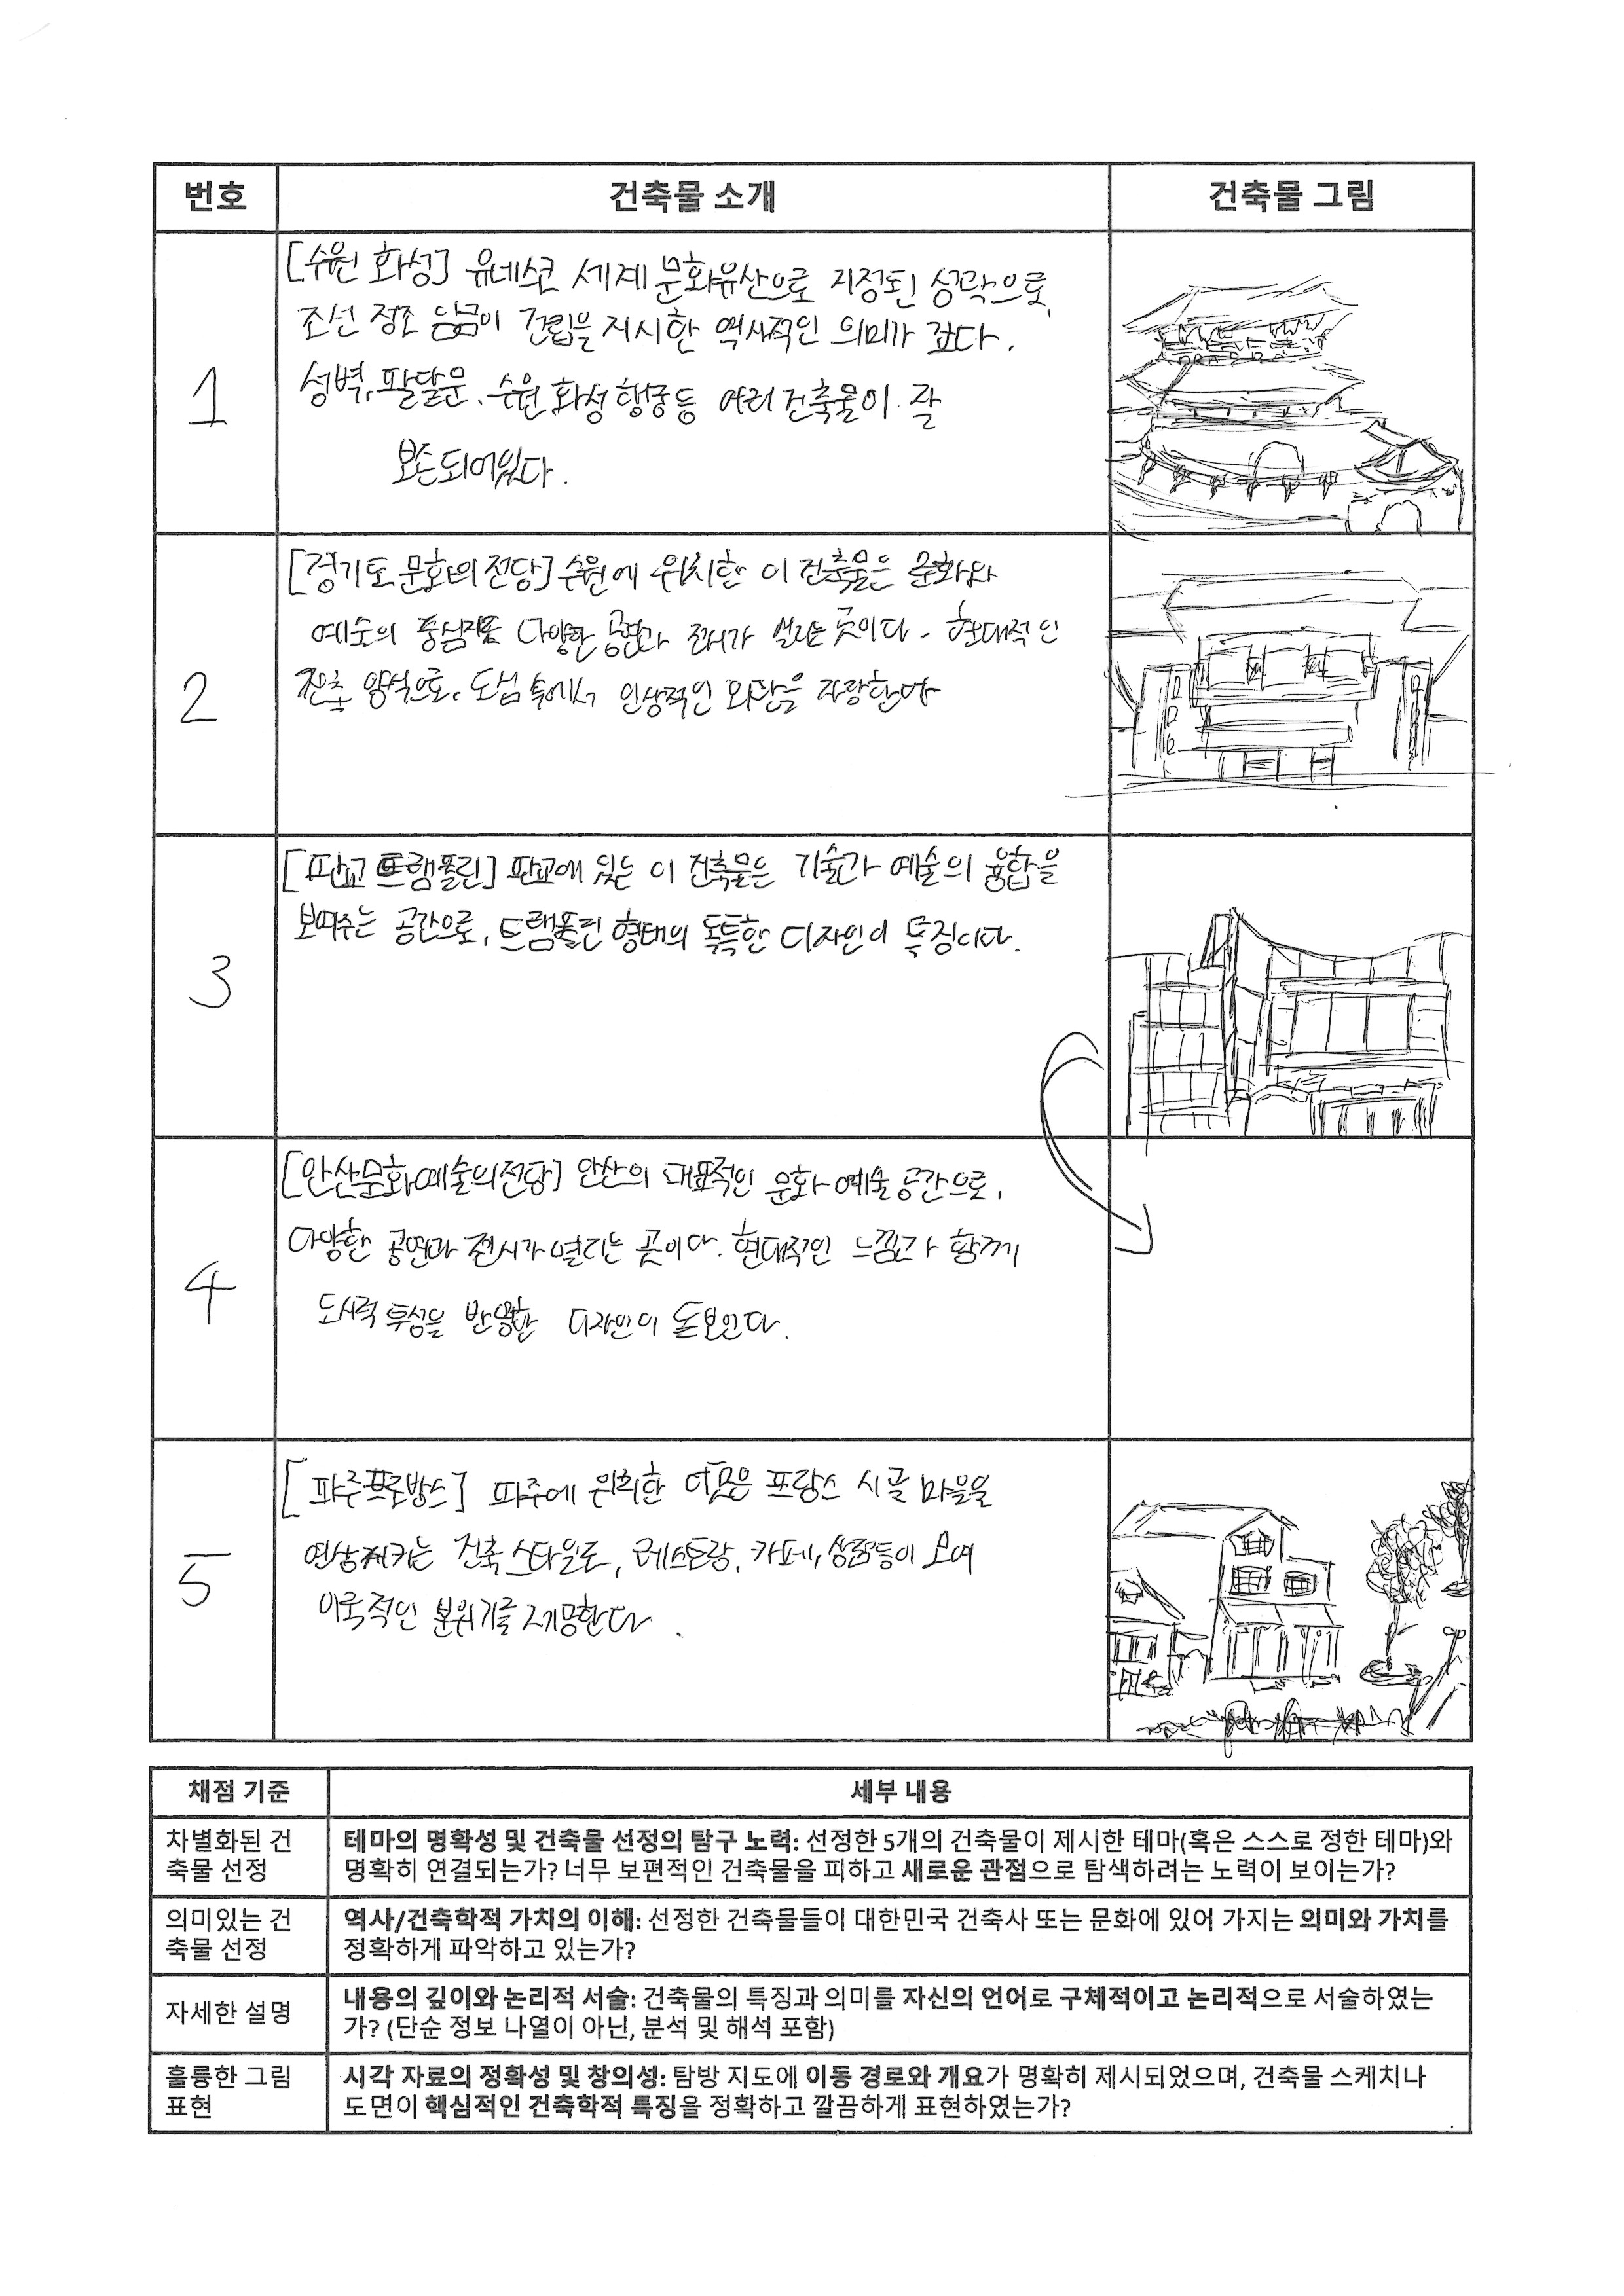 번호 건축물 소개 건축물 그림
1
[수원 화성] 유네스코 세계 문화유산으로 지정된 성곽으로,
조선 정조 임금이 건립을 지시한 역사적인 의미가 깊다.
성벽, 팔달문, 수원 화성 행궁 등 여러 건축물이 잘
보존되어있다.
2
[경기도 문화의 전당] 수원에 위치한 이 건축물은 문화와
예술의 중심지로 다양한 공연과 전시가 열리는 곳이다. 현대적인
건축 양식으로, 도심 속에서 인상적인 외관을 자랑한다
3
[판교 트램폴린] 판교에 있는 이 건축물은 기술과 예술의 융합을
보여주는 공간으로, 트램폴린 형태의 독특한 디자인이 특징이다.
4
[안산문화예술의전당] 안산의 대표적인 문화 예술 공간으로,
다양한 공연과 전시가 열리는 곳이다. 현대적인 느낌과 함께
도시적 특성을 반영한 디자인이 돋보인다.
5
[파주프로방스] 파주에 위치한 이곳은 프랑스 시골 마을을
연상시키는 건축 스타일로, 레스토랑, 카페, 상점등이 모여
이국적인 분위기를 제공한다.
채점 기준 세부 내용
차별화된 건
축물 선정
테마의 명확성 및 건축물 선정의 탐구 노력: 선정한 5개의 건축물이 제시한 테마(혹은 스스로 정한 테마)와
명확히 연결되는가? 너무 보편적인 건축물을 피하고 새로운 관점으로 탐색하려는 노력이 보이는가?
의미있는 건
축물 선정
역사/건축학적 가치의 이해: 선정한 건축물들이 대한민국 건축사 또는 문화에 있어 가지는 의미와 가치를
정확하게 파악하고 있는가?
자세한 설명
내용의 깊이와 논리적 서술: 건축물의 특징과 의미를 자신의 언어로 구체적이고 논리적으로 서술하였는
가? (단순 정보 나열이 아닌, 분석 및 해석 포함)
훌륭한 그림
표현
시각 자료의 정확성 및 창의성: 탐방 지도에 이동 경로와 개요가 명확히 제시되었으며, 건축물 스케치나
도면이 핵심적인 건축학적 특징을 정확하고 깔끔하게 표현하였는가?